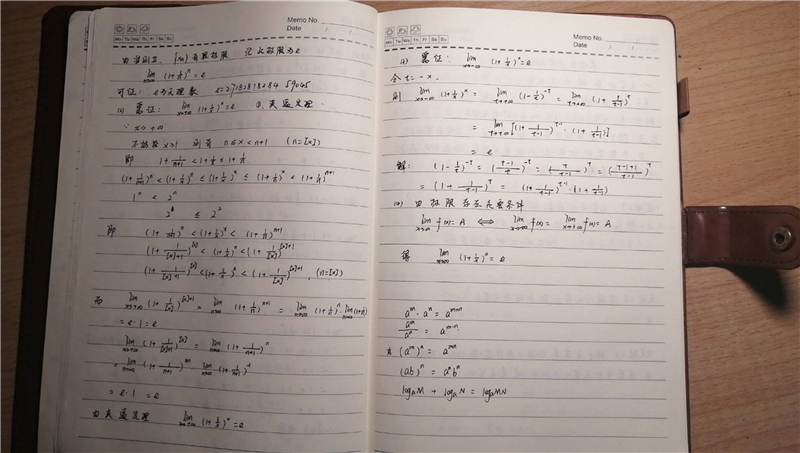 Memo No.
Date
Mo Tu We Th Fr Sa Su
由准则II, {xn}有极限 记此极限为e
lim n→∞ (1+1/n)^n = e
可证: e为无理数 e=2.718281828459045
(1) 需证: lim x→+∞ (1+1/x)^x = e ① 夹逼定理.
∵ x→+∞
不妨设 x≥1 则有 n≤x<n+1 (n=[x])
即 1+1/(n+1) < 1+1/x ≤ 1+1/n
(1+1/(n+1))^n < (1+1/x)^n ≤ (1+1/x)^x ≤ (1+1/n)^x < (1+1/n)^(n+1)
1^n < 2^n
≤ 2^2
即 (1+1/(n+1))^n < (1+1/x)^x < (1+1/n)^(n+1)
(1+1/([x]+1))^[x] < (1+1/x)^x < (1+1/[x])^([x]+1)
(1+1/([x]+1))^[x] < (1+1/x)^x < (1+1/[x])^([x]+1) (n=[x])
而 lim x→+∞ (1+1/[x])^([x]+1) = lim n→∞ (1+1/n)^(n+1) = lim n→∞ (1+1/n)^n · lim n→∞ (1+1/n)
= e·1 = e
lim x→+∞ (1+1/([x]+1))^[x] = lim n→∞ (1+1/(n+1))^n
= lim n→∞ (1+1/(n+1))^(n+1) · lim n→∞ (1+1/(n+1))^-1
= e·1 = e
由夹逼定理 lim x→+∞ (1+1/x)^x = e
Memo No.
Date
Mo Tu We Th Fr Sa Su
需证: lim x→-∞ (1+1/x)^x = e
令 t = -x.
则 lim x→-∞ (1+1/x)^x = lim t→+∞ (1-1/t)^-t = lim t→+∞ (1+1/(t-1))^t
= lim t→+∞ [(1+1/(t-1))^(t-1) · (1+1/(t-1))]
= e
解: (1-1/t)^-t = ((t-1)/t)^-t = (t/(t-1))^t = ((t-1+1)/(t-1))^t
= (1+1/(t-1))^t = (1+1/(t-1))^(t-1) · (1+1/(t-1))
由极限存在充要条件
lim x→∞ f(x)=A ⟺ lim x→-∞ f(x) = lim x→+∞ f(x) = A
得 lim x→∞ (1+1/x)^x = e
a^m · a^n = a^(m+n)
a^m/a^n = a^(m-n)
(a^m)^n = a^(mn)
(ab)^n = a^n b^n
log_a M + log_a N = log_a MN